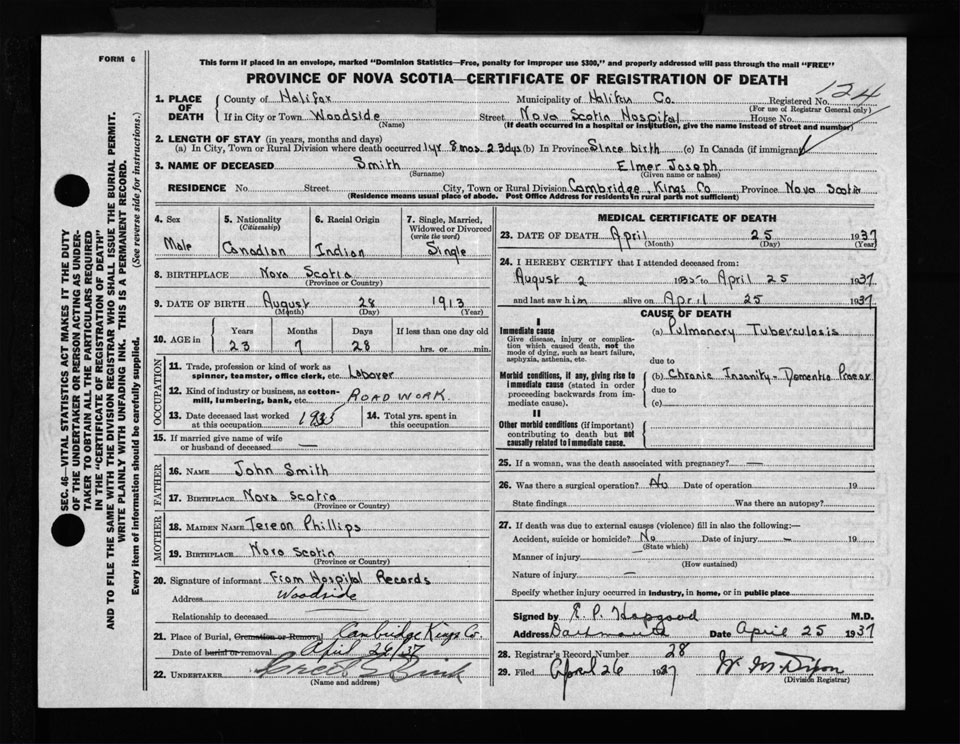 FORM 6
This form if placed in an envelope, marked "Dominion Statistics—Free, penalty for improper use $300," and properly addressed will pass through the mail "FREE"
PROVINCE OF NOVA SCOTIA—CERTIFICATE OF REGISTRATION OF DEATH
SEC. 46—VITAL STATISTICS ACT MAKES IT THE DUTY
OF THE UNDERTAKER OR PERSON ACTING AS UNDER-
TAKER TO OBTAIN ALL THE PARTICULARS REQUIRED
IN THE "CERTIFICATE OF REGISTRATION OF DEATH"
AND TO FILE THE SAME WITH THE DIVISION REGISTRAR WHO SHALL ISSUE THE BURIAL PERMIT.
WRITE PLAINLY WITH UNFADING INK. THIS IS A PERMANENT RECORD.
Every item of information should be carefully supplied. (See reverse side for instructions.)
1. PLACE OF DEATH
County of Halifax Municipality of Halifax Co. Registered No. 124
(For use of Registrar General only)
If in City or Town Woodside Street Nova Scotia Hospital House No.
(Name) (If death occurred in a hospital or institution, give the name instead of street and number)
2. LENGTH OF STAY (in years, months and days)
(a) In City, Town or Rural Division where death occurred 1yr 8mos. 23dys (b) In Province Since birth (c) In Canada (if immigrant)
3. NAME OF DECEASED Smith Elmer Joseph
(Surname) (Given name or names)
RESIDENCE No. Street City, Town or Rural Division Cambridge, Kings Co Province Nova Scotia
(Residence means usual place of abode. Post Office Address for residents in rural parts not sufficient)
4. Sex Male
5. Nationality (Citizenship) Canadian
6. Racial Origin Indian
7. Single, Married, Widowed or Divorced (write the word) Single
8. BIRTHPLACE Nova Scotia
(Province or Country)
9. DATE OF BIRTH August 28 1913
(Month) (Day) (Year)
10. AGE in Years 23 Months 7 Days 28 If less than one day old hrs. or min.
OCCUPATION
11. Trade, profession or kind of work as
spinner, teamster, office clerk, etc. Laborer
12. Kind of industry or business, as cotton-
mill, lumbering, bank, etc. ROAD WORK.
13. Date deceased last worked at this occupation 1935
14. Total yrs. spent in this occupation
15. If married give name of wife
or husband of deceased —
FATHER
16. NAME John Smith
17. BIRTHPLACE Nova Scotia
(Province or Country)
MOTHER
18. MAIDEN NAME Teresa Phillips
19. BIRTHPLACE Nova Scotia
(Province or Country)
20. Signature of informant From Hospital Records
Address Woodside
Relationship to deceased
21. Place of Burial, Cremation or Removal Cambridge Kings Co.
Date of burial or removal April 26/37
22. UNDERTAKER
(Name and address)
MEDICAL CERTIFICATE OF DEATH
23. DATE OF DEATH April 25 1937
(Month) (Day) (Year)
24. I HEREBY CERTIFY that I attended deceased from:
August 2 1935 to April 25 1937
and last saw him alive on April 25 1937
CAUSE OF DEATH
I
Immediate cause (a) Pulmonary Tuberculosis
Give disease, injury or complica-
tion which caused death, not the
mode of dying, such as heart failure,
asphyxia, asthenia, etc.
due to
Morbid conditions, if any, giving rise to
immediate cause (stated in order
proceeding backwards from im-
mediate cause).
(b) Chronic Insanity - Dementia Praecox
due to
(c)
II
Other morbid conditions (if important)
contributing to death but not
causally related to immediate cause.
25. If a woman, was the death associated with pregnancy? —
26. Was there a surgical operation? No Date of operation 19
State findings Was there an autopsy?
27. If death was due to external causes (violence) fill in also the following:—
Accident, suicide or homicide? No Date of injury – 19
(State which)
Manner of injury —
(How sustained)
Nature of injury —
Specify whether injury occurred in industry, in home, or in public place
Signed by E. P. Hopgood M.D.
Address Dartmouth Date April 25 1937
28. Registrar's Record Number 28
29. Filed April 26 1937 Dixon
(Division Registrar)